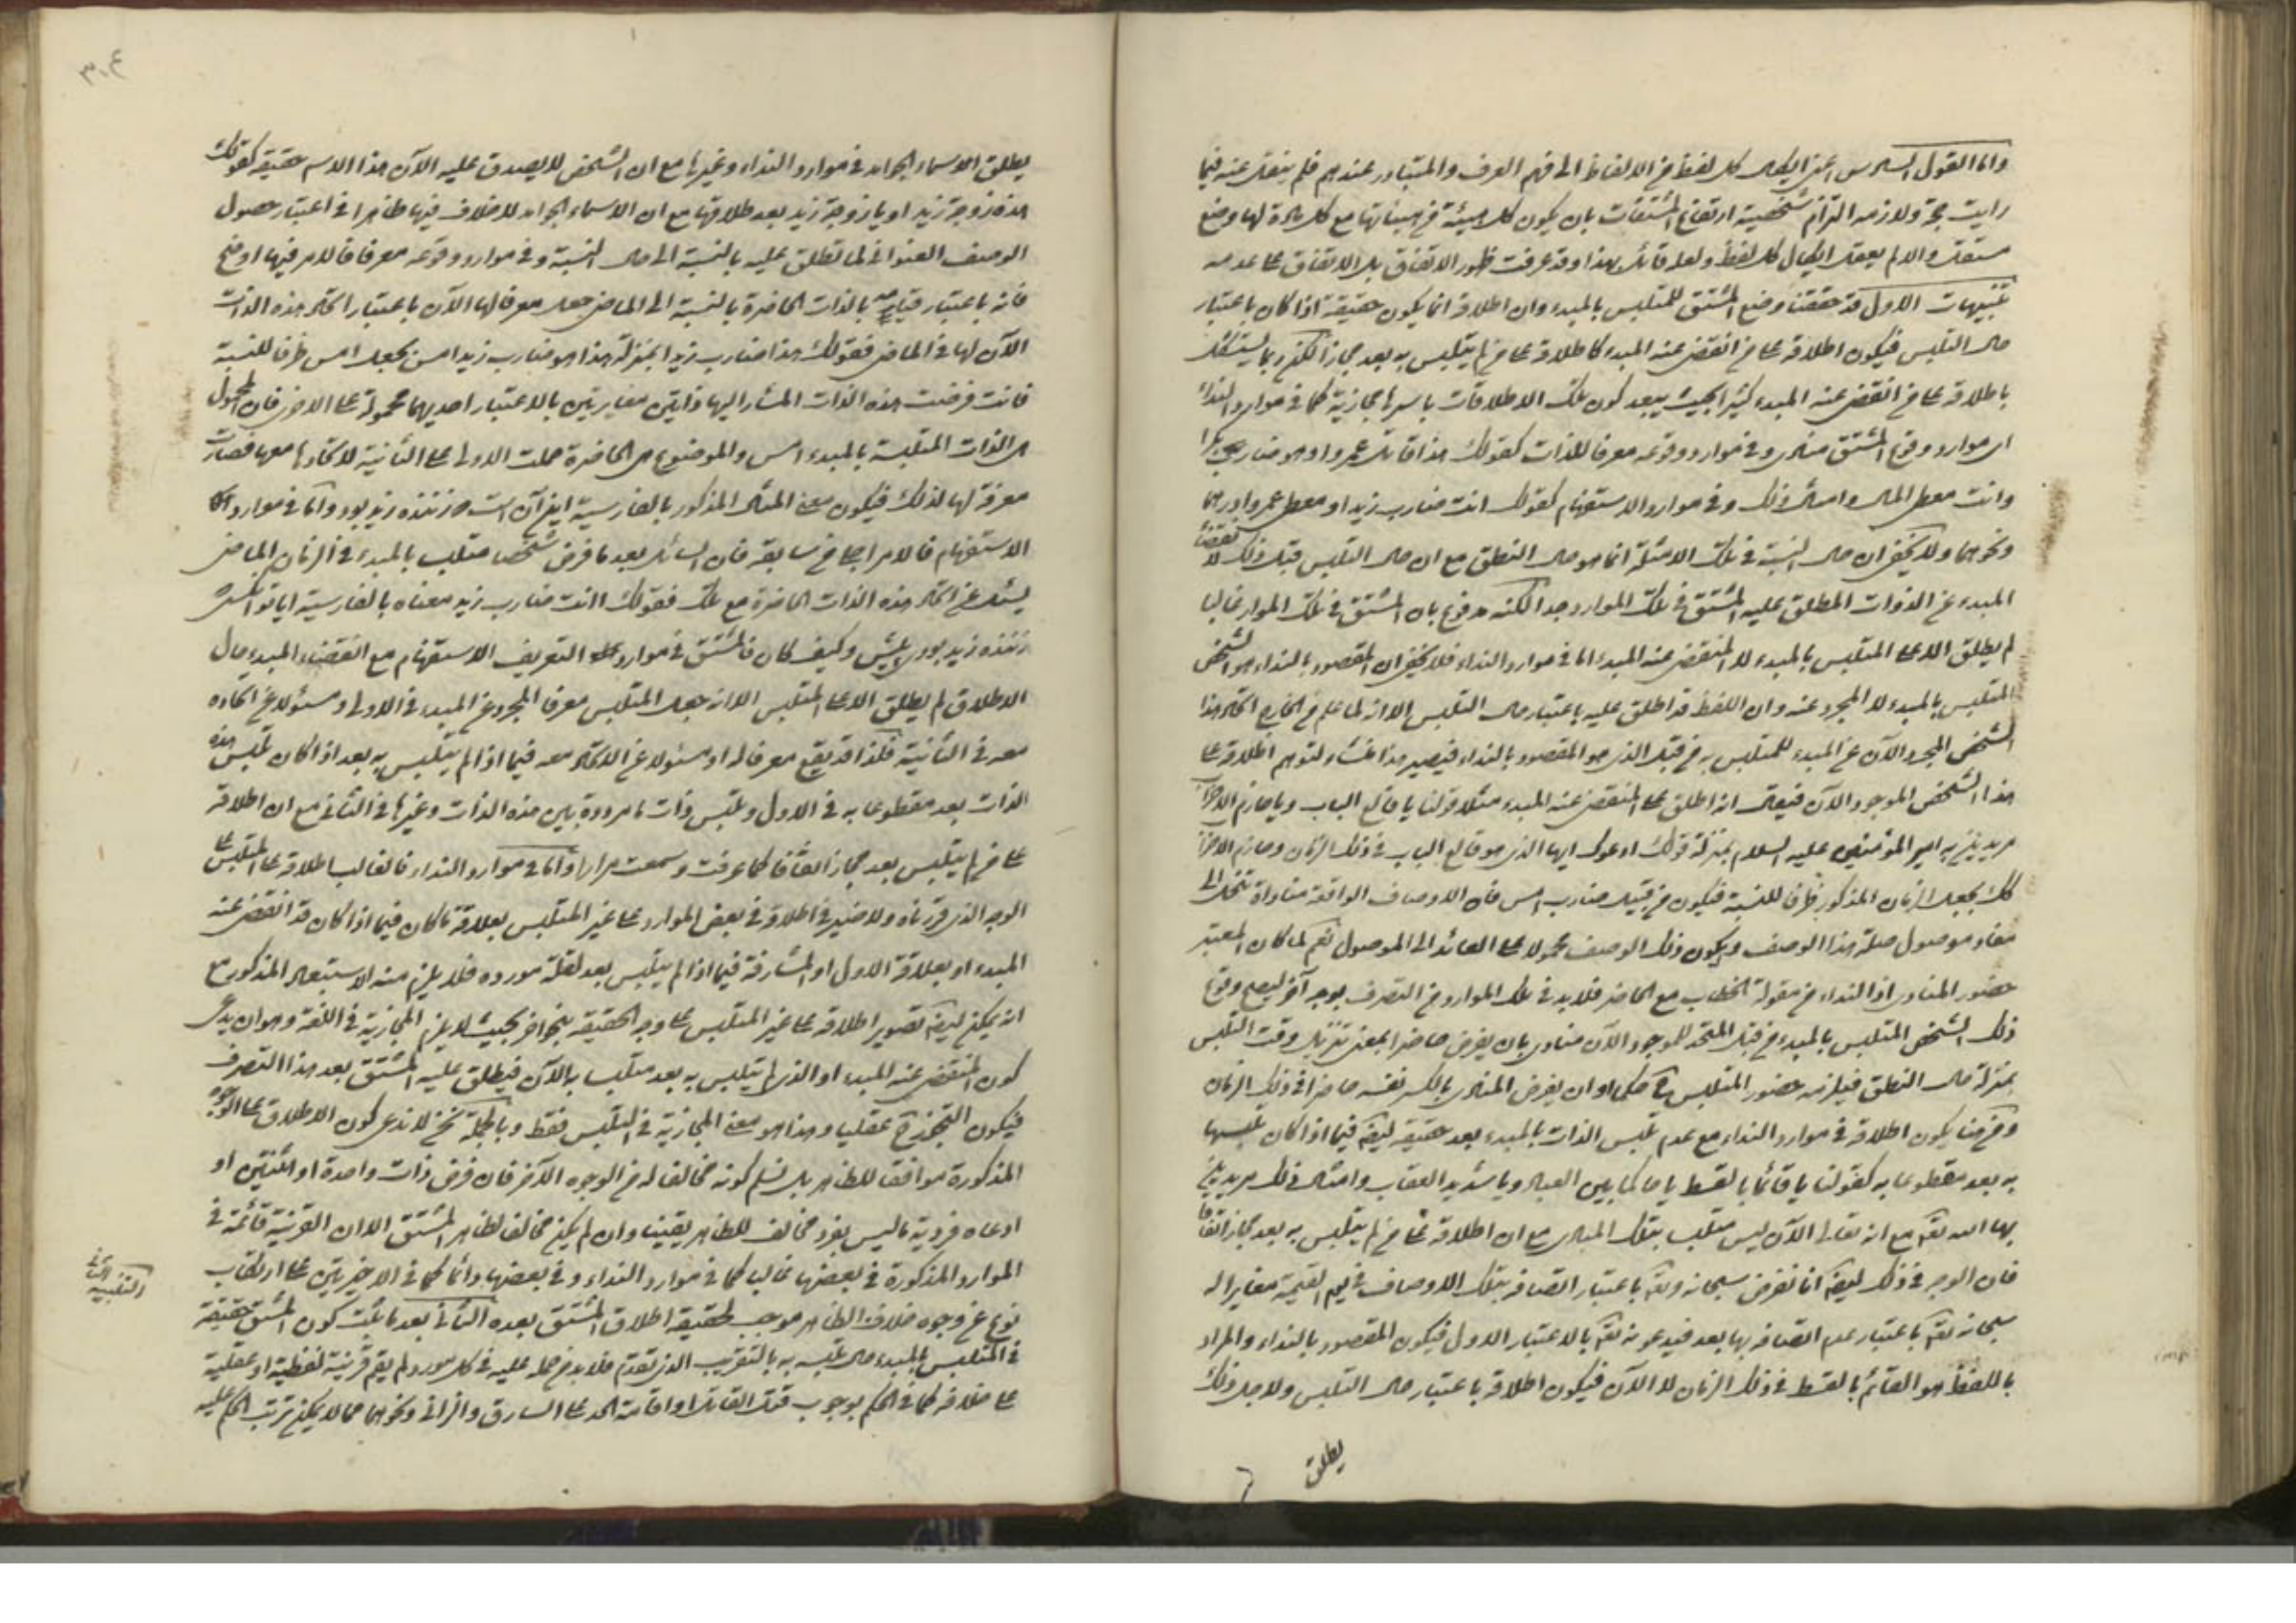 واما القول السادس اعني ايكال كل لفظ من الالفاظ الى فهم العرف والمتبادر عندهم فلم ينقل عنه فيما
رايت حجة ولازمه التزام شخصية اوضاع المشتقات بان يكون كل هيئة من هيئاتها مع كل مادة لها وضع
مستقل والا لم يعقل ايكال كل لفظ ولعله قائل بهذا وقد عرفت ظهور الاتفاق بل الاتفاق على عدمه
تنبيهات الاول قد حققنا وضع المشتق للمتلبس بالمبدء وان اطلاقه انما يكون حقيقة اذا كان باعتبار
حال التلبس فيكون اطلاقه على من انقضى عنه المبدء كاطلاقه على من لم يتلبس به بعد مجازا لكن ربما يستشكل
باطلاقه على من انقضى عنه المبدء كثيرا بحيث يبعد كون تلك الاطلاقات باسرها مجازية كما في موارد النداء
اى موارد وقوع المشتق منادى وفي موارد وقوعه معرفا للذات كقولك هذا قاتل عمرو او هو ضارب بكرا
وانت معطي المال وامثال ذلك وفي موارد الاستفهام كقولك انت ضارب زيد او معطي عمرو درهما
ونحوهما ولا يخفى ان حال النسبة في تلك الامثلة انما هو حال النطق مع ان حال التلبس قبل ذلك لانقضاء
المبدء عن الذوات المطلق عليه المشتق في تلك الموارد جدا لكنه مدفوع بان المشتق في تلك الموارد غالبا
لم يطلق الا على المتلبس بالمبدء لا المنقضى عنه المبدء اما في موارد النداء فلا يخفى ان المقصود بالنداء هو الشخص
المتلبس بالمبدء لا المجرد عنه وان اللفظ قد اطلق عليه باعتبار حال التلبس الا انه لما علم من الخارج اتحاد هذا
الشخص المجرد الآن عن المبدء للمتلبس به من قبل الذي هو المقصود بالنداء فيصير هذا منشاء لتوهم اطلاقه على
هذا الشخص الموجود الآن فيقال انه اطلق على المنقضى عنه المبدء مثلا قولنا يا قالع الباب ويا هازم الاحزاب
مريدين به امير المؤمنين عليه السلام بمنزلة قولك ادعوك ايها الذي هو قالع الباب في ذلك الزمان وهازم الاحزاب
كك بجعل الزمان المذكور ظرفا للنسبة فيكون من قبيل ضارب امس فان الاوصاف الواقعة مناداة تنحل الى
مفاد موصول صلته هذا الوصف ويكون ذلك الوصف محمولا على العائد الى الموصول نعم لما كان المعتبر
حضور المنادى اذ النداء من مقولة الخطاب مع الحاضر فلا بد في تلك الموارد من التصرف بوجه آخر ليصح وقوع
ذلك الشخص المتلبس بالمبدء من قبل المتحد للموجود الآن منادى بان يفرض حاضرا بمعنى تنزيل وقت التلبس
بمنزلة حال النطق فيلزمه حضور المتلبس ح حكما او ان يفرض المنادي بالكسر نفسه حاضرا في ذلك الزمان
ومن هنا يكون اطلاقه في موارد النداء مع عدم تلبس الذات بالمبدء بعد حقيقة ايضا فيما اذا كان تلبسها
به بعد مقطوعا به كقولنا يا قائما بالقسط يا حاكما بين العباد ويا شديد العقاب وامثال ذلك مريدين
بها الله تعالى مع انه تعالى الآن ليس متلبسا بتلك المبادى مع ان اطلاقه على من لم يتلبس به بعد مجاز اتفاقا
فان الوجه في ذلك ايضا انا نفرض سبحانه وتعالى باعتبار اتصافه بتلك الاوصاف في يوم القيمة مغايرا له
سبحانه تعالى باعتبار عدم اتصافه بها بعد فيدعونه تعالى بالاعتبار الاول فيكون المقصود بالنداء والمراد
باللفظ هو القائم بالقسط في ذلك الزمان لا الآن فيكون اطلاقه باعتبار حال التلبس ولاجل ذلك
يطلق
يطلق الاسماء الجوامد في موارد النداء وغيرها مع ان الشخص لا يصدق عليه الآن هذا الاسم حقيقة كقولك
هذه زوجة زيد او يا زوجة زيد بعد طلاقها مع ان الاسماء الجوامد لا خلاف فيها ظاهرا في اعتبار حصول
الوصف العنواني لما تطلق عليه بالنسبة الى حال النسبة وفي موارد وقوعه معرفا فالامر فيها اوضح
فانه باعتبار قيامه بالذات الحاضرة بالنسبة الى الماضي جعل معرفا لها الآن باعتبار اتحاد هذه الذات
الآن لها في الماضي فقولك هذا ضارب زيد بمنزلة هذا هو ضارب زيد امس بجعل امس ظرفا للنسبة
فانت فرضت هذه الذات المشار اليها ذاتين مغايرتين بالاعتبار احديهما محمولة على الاخرى فان المحمول
هى الذات المتلبسة بالمبدء امس والموضوع هى الحاضرة حملت الاولى على الثانية لاتحادها معها فصارت
معرفة لها لذلك فيكون معنى المثال المذكور بالفارسية اين آن است كه زننده زيد بود واما في موارد
الاستفهام فالامر اجلى من سابقه فان السائل بعد ما فرض شخصا متلبسا بالمبدء في الزمان الماضي
يسئل عن اتحاد هذه الذات الحاضرة مع تلك فقولك اانت ضارب زيد معناه بالفارسية ايا تو آنكسى
زننده زيد بودى پيش وكيف كان فالمشتق في موارد التعريف الاستفهام مع انقضاء المبدء حال
الاطلاق لم يطلق الا على المتلبس الا انه جعل المتلبس معرفا للمجرد عن المبدء في الاولى ومسئولا عن اتحاده
معه في الثانية فلذا قد يقع معرفا له او مسئولا عن الاتحاد معه فيما اذا لم يتلبس به بعد اذا كان تلبس هذه
الذات بعد مقطوعا به في الاول وتلبس ذات ما مرددة بين هذه الذات وغيرها في الثاني مع ان اطلاقه
على من لم يتلبس بعد مجاز اتفاقا كما عرفت وسمعت مرارا واما في موارد النداء فالغالب اطلاقه على المتلبس على
الوجه الذي قررناه ولا ضير في اطلاقه في بعض الموارد على غير المتلبس بعلاقة ما كان فيما اذا كان قد انقضى عنه
المبدء او بعلاقة الاول او المشارفة فيما اذا لم يتلبس بعد لقلة مورده فلا يلزم منه الاستبعاد المذكور مع
انه يمكن ايضا تصوير اطلاقه على غير المتلبس على وجه الحقيقة بنحو آخر بحيث لا يلزم المجازية في اللغة وهو ان يدعى
كون المنقضى عنه المبدء او الذي لم يتلبس به بعد متلبسا بالآن فيطلق عليه المشتق بعد هذا التصرف
فيكون التجوز ح عقليا وهذا هو معنى المجازية في التلبس فقط وبالجملة نحن لا ندعى كون الاطلاق على الوجوه
المذكورة موافقا للظاهر بل نسلم كونه مخالفا له من الوجوه الآخر فان فرض ذات واحدة او اثنتين او
ادعاء فردية ما ليس بفرد مخالف للظاهر يقينا وان لم يكن مخالفا لظاهر المشتق الا ان القرينة قائمة في
الموارد المذكورة في بعضها غالبا كما في موارد النداء وفي بعضها دائما كما في الاخيرين على ارتكاب
نوع من وجوه خلاف الظاهر موجب لحقيقة اطلاق المشتق بعده الثاني بعد ما ثبت كون المشتق حقيقة
في المتلبس بالمبدء حال تلبسه به بالتقريب الذي تقدم فلا بد من حمله عليه في كل مورد لم يقم قرينة لفظية او عقلية
على خلافه كما في الحكم بوجوب قتل القاتل او اقامة الحد على السارق والزاني ونحوهما مما لا يمكن ترتب الحكم عليه
التنبيه الثاني